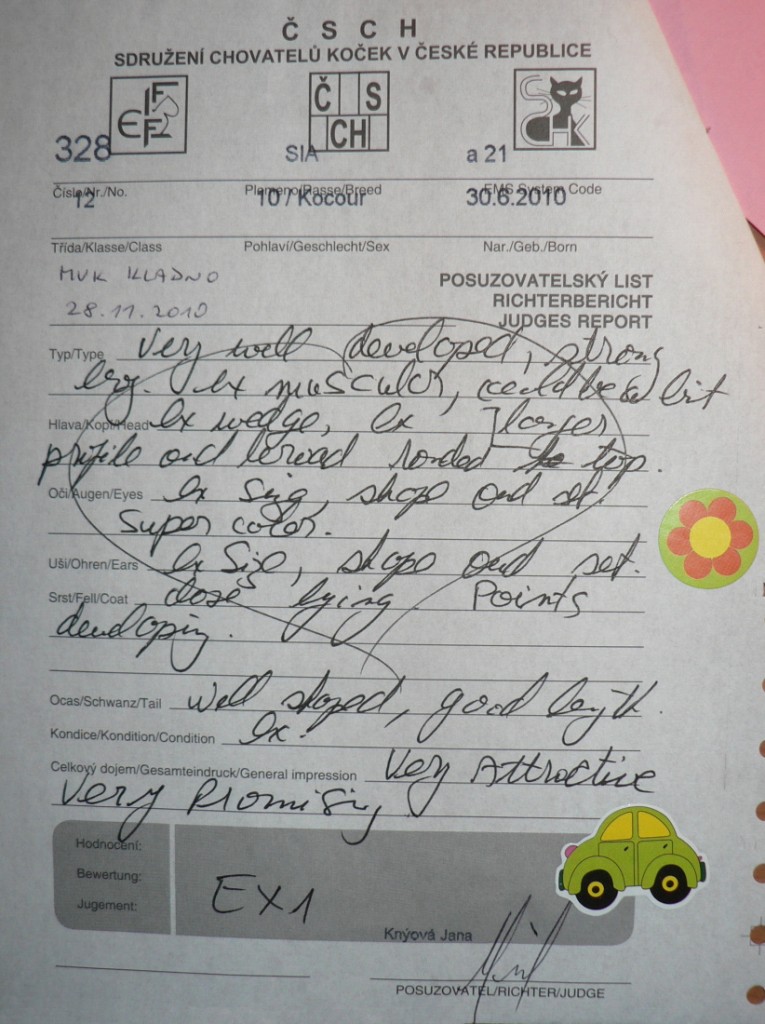 Č S C H
SDRUŽENÍ CHOVATELŮ KOČEK V ČESKÉ REPUBLICE
FIFE
Č S
CH
SCHK
328 SIA a 21
Číslo/Nr./No. Plemeno/Rasse/Breed EMS System Code
12 10 / Kocour 30.6.2010
Třída/Klasse/Class Pohlaví/Geschlecht/Sex Nar./Geb./Born
MVK KLADNO
28.11.2010
POSUZOVATELSKÝ LIST
RICHTERBERICHT
JUDGES REPORT
Typ/Type Very well developed, strong
leg. Ex muscular, could be a bit
larger
Hlava/Kopf/Head Ex wedge, Ex
profile and foread ronded to top.
Oči/Augen/Eyes Ex Size, shape and set.
Super color.
Uši/Ohren/Ears Ex Size, shape and set.
Srst/Fell/Coat close lying Points
developing.
Ocas/Schwanz/Tail Well shaped, good length.
Kondice/Kondition/Condition Ex.
Celkový dojem/Gesamteindruck/General impression Very Attractive
Very Promising
Hodnocení:
Bewertung:
Jugement:
EX1
Knýová Jana
POSUZOVATEL/RICHTER/JUDGE